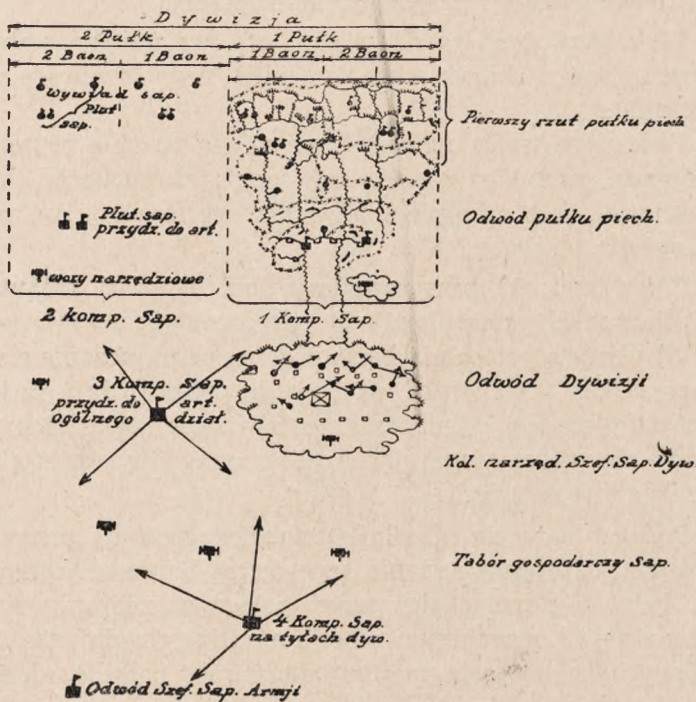 Dywizja
2 Pułk 1 Pułk
2 Baon 1 Baon 1 Baon 2 Baon
Wywiad sap.
Plut
sap.
Pierwszy rzut pułku piech
Plut. sap.
przydz. do art.
Odwód pułku piech.
wozy narzędziowe
2 komp. Sap. 1 Komp. Sap.
3 Komp. Sap.
przydz. do art.
ogólnego dział.
Odwód Dywizji
Kol. narzęd. Szef. Sap. Dyw.
Tabór gospodarczy Sap.
4 Komp. Sap.
na tyłach dyw.
Odwód Szef. Sap. Armji